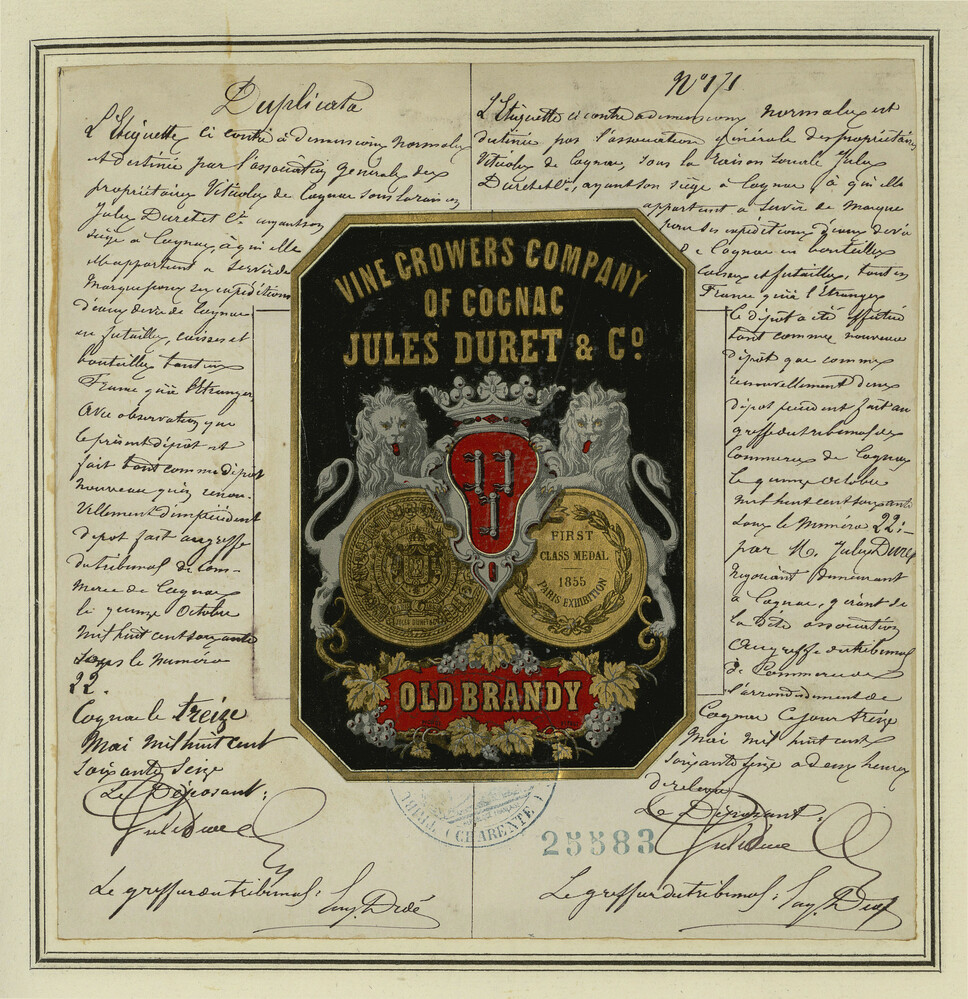 Duplicata
L'Etiquette ci contre à dimensions normales
est destinée par l'association générale des
propriétaires Viticoles de Cognac sous la raison
Jules Duret et Cie ayant son
siège à Cognac, à qui elle
appartient a servir de
Marque pour ses expéditions
d'eaux de vie de Cognac
en futailles, caisses et
bouteilles tant en
France qu'à l'Etranger
Avec observation que
le présent dépôt est
fait tant comme dépôt
nouveau qu'en renou-
vellement d'un précédent
depot fait au greffe
du tribunal de Com-
merce de Cognac
le quinze Octobre
mil huit cent soixante
sous le Numéro
22.
Cognac le treize
Mai mil huit cent
soixante seize
Le Déposant:
Le greffier du tribunal:
No 171
L'Etiquette ci contre a dimensions normales est
destinée par l'association générale des propriétaires
Viticoles de Cognac, sous la raison sociale Jules
Duret et Cie, ayant son siège à Cognac, à qui elle
appartient a servir de Marque
pour ses expéditions d'eaux de vie
de Cognac en bouteilles
caisses et futailles, tant en
France qu'à l'Etranger
le dépôt a été effectué
tant comme nouveau
dépôt que comme
renouvellement d'un
dépot précédent fait au
greffe du tribunal de
Commerce de Cognac
le quinze octobre
mil huit cent soixante
sous le numéro 22:
par M. Jules Duret
Négociant demeurant
à Cognac, gérant de
la dite association
au greffe du tribunal
de Commerce de
l'arrondissement de
Cognac Ce jour treize
Mai mil huit cent
soixante seize a deux heures
de relevée
Le Déposant:
Le greffier du tribunal:
VINE GROWERS COMPANY
OF COGNAC
JULES DURET & Co.
FIRST
CLASS MEDAL
1855
PARIS EXHIBITION
JULES DURET & Co
OLD BRANDY
TRIB
(CHARENTE)
25583